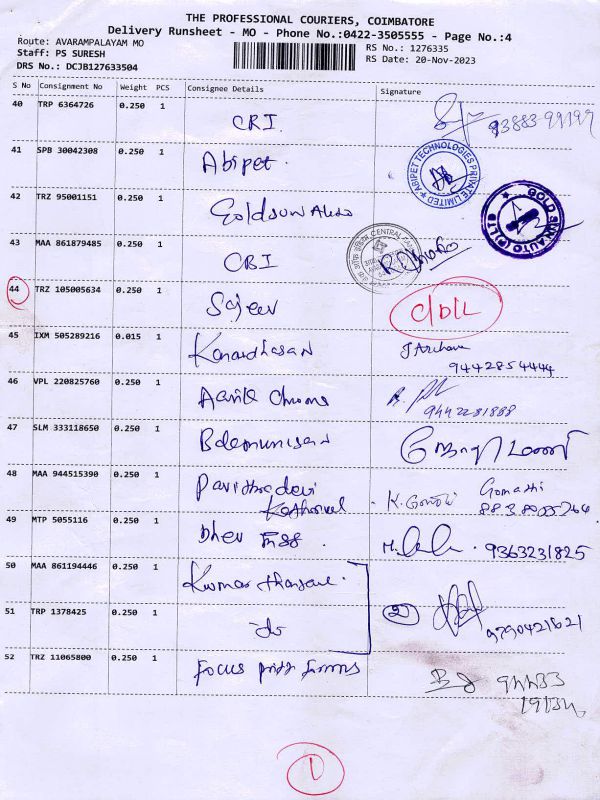 THE PROFESSIONAL COURIERS, COIMBATORE
Delivery Runsheet - MO - Phone No.:0422-3505555 - Page No.:4
Route: AVARAMPALAYAM MO
RS No.: 1276335
Staff: PS SURESH
RS Date: 20-Nov-2023
DRS No.: DCJB127633504
S No Consignment No Weight PCS Consignee Details Signature
40 TRP 6364726 0.250 1 CRI
41 SPB 30042308 0.250 1 Abipet
ABIPET TECHNOLOGIES PRIVATE LIMITED
42 TRZ 95001151 0.250 1 Goldsun Auto
GOLD SUN AUTO (P) LTD
43 MAA 861879485 0.250 1 CBI
44 TRZ 105005634 0.250 1 Sajeev C/DL
45 IXM 505289216 0.015 1 Kanardhasan J Archana
9442854444
46 VPL 220825760 0.250 1
9442281888
47 SLM 333118650 0.250 1 Balamunisan
48 MAA 944515390 0.250 1 Pavithradevi K. Gomathi Gomathi
49 MTP 5055116 0.250 1 Dhev 9363231825
50 MAA 861194446 0.250 1 Kumar
51 TRP 1378425 0.250 1 do 2
9790421621
52 TRZ 11065800 0.250 1 Focus
1